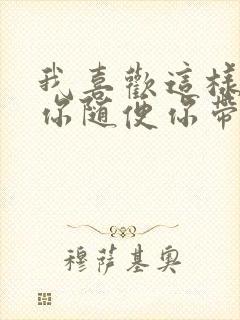 我喜歡這樣
你隨便你帶
穆薩基奧